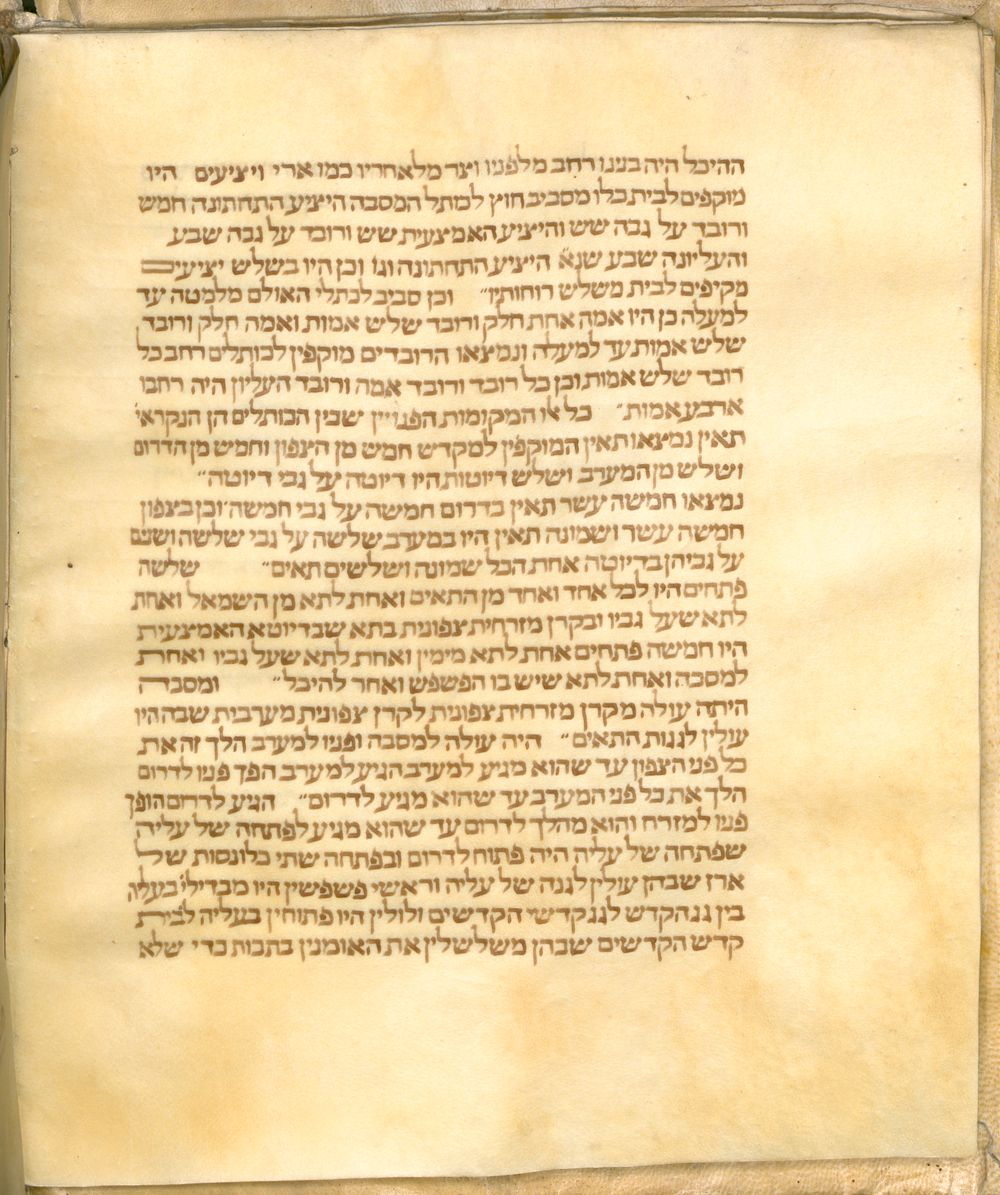 ההיכל היה בנינו רחב מלפניו וצר מלאחריו כמו ארי ויציעים היו
מוקפים לבית כלו מסביב חוץ לכותל המסבה היציע התחתונה חמש
ורובד על גבה שש והיציע האמצעית שש ורובד על גבה שבע
והעליונה שבע שנא' היציע התחתונה וגו' וכן היו בשלש יציעים
מקיפים לבית משלש רוחותיו״ וכן סביב לכתלי האולם מלמטה עד
למעלה כן היו אמה אחת חלק ורובד שלש אמות ואמה חלק ורובד
שלש אמות עד למעלה ונמצאו הרובדים מוקפין לכותלים רחב כל
רובד שלש אמות וכן כל רובד ורובד אמה ורובד העליון היה רחבו
ארבע אמות״ כל אלו המקומות הפנויין שבין הכותלים הן הנקראי'
תאין נמצאו תאין המוקפין למקדש חמש מן הצפון וחמש מן הדרום
ושלש מן המערב ושלש דיוטות היו דיוטה על גבי דיוטה״
נמצאו חמשה עשר תאין בדרום חמשה על גבי חמשה וכן בצפון
חמשה עשר ושמונה תאין היו במערב שלשה על גבי שלשה ושנים
על גביהן בדיוטה אחת הכל שמונה ושלשים תאים״ שלשה
פתחים היו לכל אחד ואחד מן התאים ואחת לתא מן השמאל ואחת
לתא שעל גביו ובקרן מזרחית צפונית בתא שבדיוטא האמצעית
היו חמשה פתחים אחת לתא מימין ואחת לתא שעל גביו ואחת
למסבה ואחת לתא שיש בו הפשפש ואחר להיכל״ ומסבה
היתה עולה מקרן מזרחית צפונית לקרן צפונית מערבית שבה היו
עולין לגגות התאים״ היה עולה למסבה ופניו למערב הלך זה את
כל פני הצפון עד שהוא מגיע למערב הגיע למערב הפך פניו לדרום
הלך את כל פני המערב עד שהוא מגיע לדרום״ הגיע לדרום הופך
פניו למזרח והוא מהלך לדרום עד שהוא מגיע לפתחה של עליה
שפתחה של עליה היה פתוח לדרום ובפתחה שתי כלונסות של
ארז שבהן עולין לגגה של עליה וראשי פשפשין היו מבדילי' בעליה
בין גג הקדש לגג קדשי הקדשים ולולין היו פתוחין בעליה לבית
קדש הקדשים שבהן משלשלין את האומנין בתבות כדי שלא